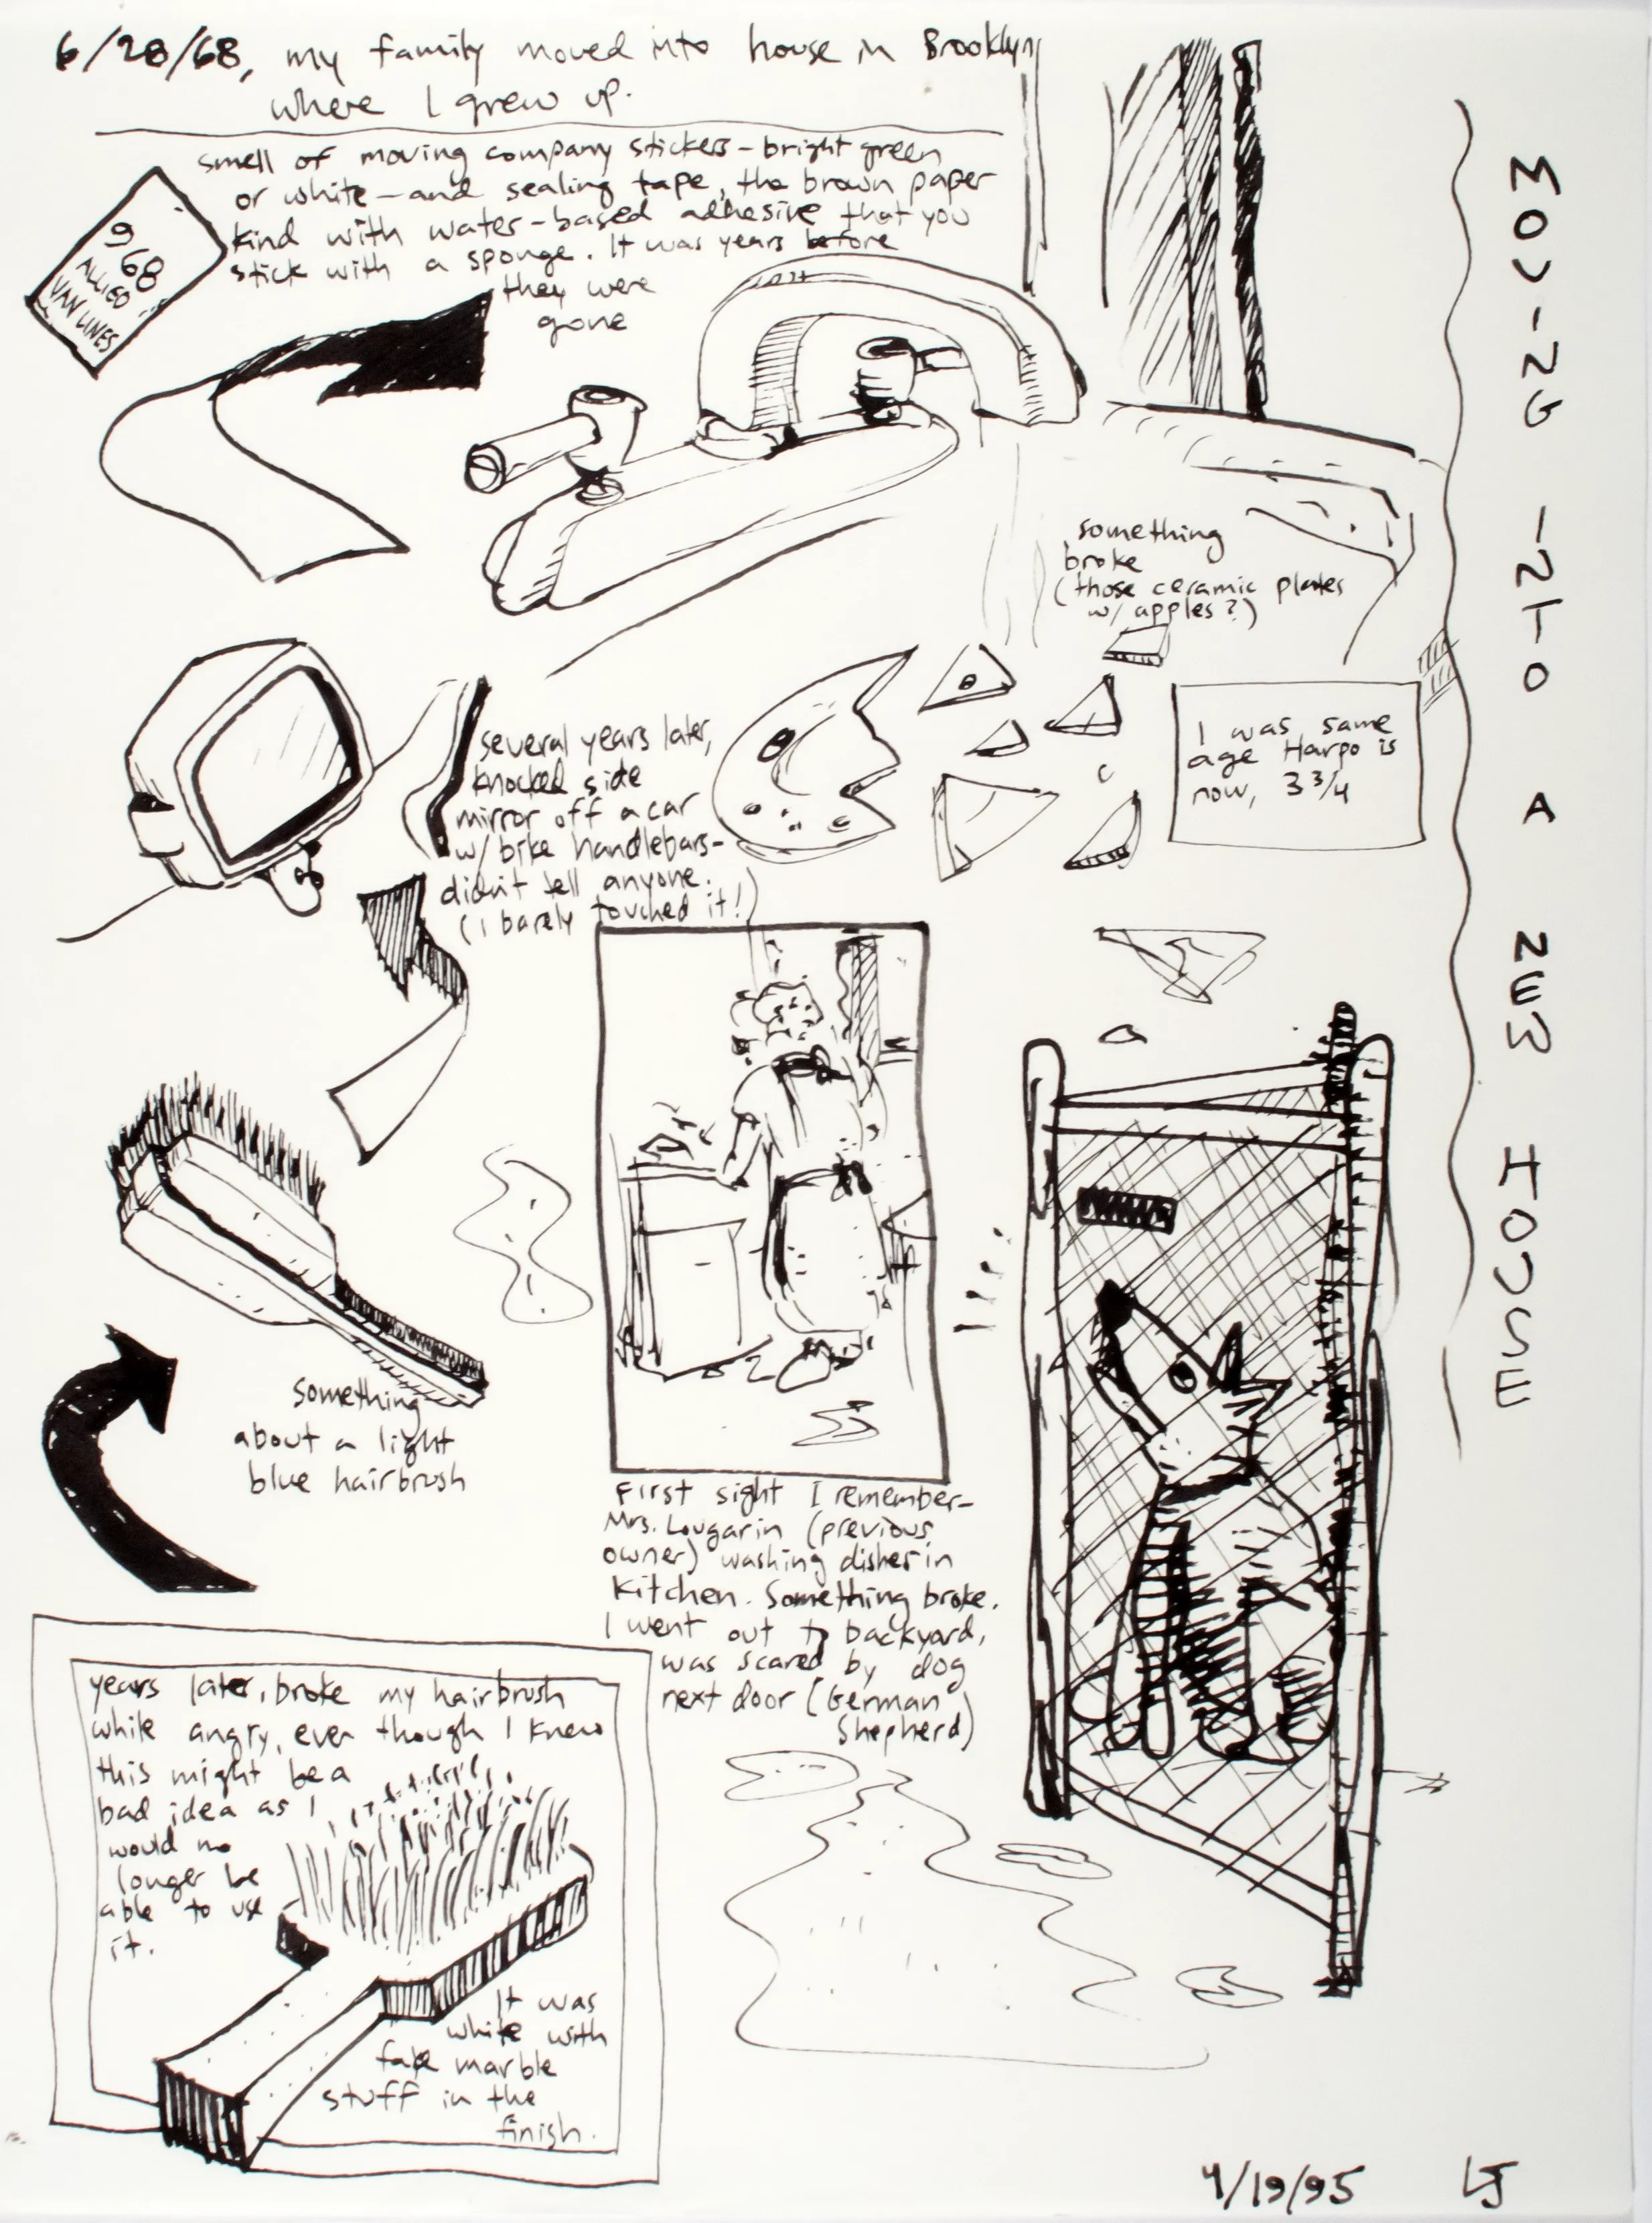 6/28/68, my family moved into house in Brooklyn
where I grew up.
smell of moving company stickers – bright green
or white – and sealing tape, the brown paper
kind with water-based adhesive that you
stick with a sponge. It was years before
they were
gone
9
968
ALLIED
VAN LINES
MOVING INTO A NEW HOUSE
something
broke
(those ceramic plates
w/ apples?)
I was same
age Harpo is
now, 3 3/4
several years later,
knocked side
mirror off a car
w/ bike handlebars–
didn't tell anyone.
(I barely touched it!)
Something
about a light
blue hairbrush
First sight I remember–
Mrs. Lougarin (previous
owner) washing dishes in
kitchen. Something broke.
I went out to backyard,
was scared by dog
next door (German
Shepherd)
years later, broke my hairbrush
while angry, even though I knew
this might be a
bad idea as I
would no
longer be
able to use
it.
It was
white with
fake marble
stuff in the
finish.
4/19/95 LJ